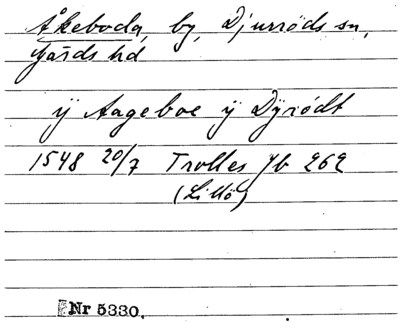 Åkeboda, by, Djurröds sn,
Gärds hd
ÿ Aageboe ÿ Dÿrödt
1548 20/7 Trolles Jb 262
(Lillö)
Nr 5330.